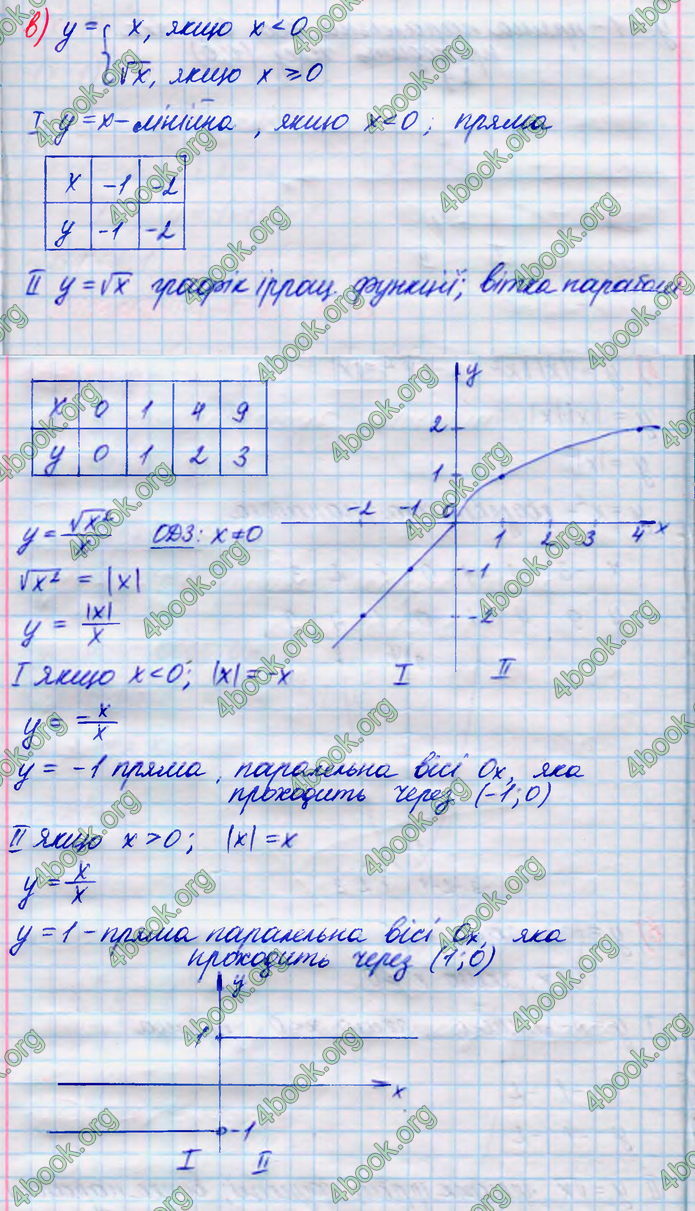 в) y = { x, якщо x < 0
√x, якщо x ≥ 0
I y = x – лінійна, якщо x < 0; пряма
x -1 -2
y -1 -2
II y = √x графік іррац. функції; вітка параболи
x 0 1 4 9
y 0 1 2 3
y
2
1
-2 -1 0 1 2 3 4 x
-1
-2
I II
y = √x² / x ОДЗ: x ≠ 0
√x² = |x|
y = |x| / x
I якщо x < 0; |x| = -x
y = -x / x
y = -1 пряма, паралельна вісі Ox, яка
проходить через (-1; 0)
II якщо x > 0; |x| = x
y = x / x
y = 1 – пряма паралельна вісі Ox, яка
проходить через (1; 0)
y
1
x
-1
I II
4book.org